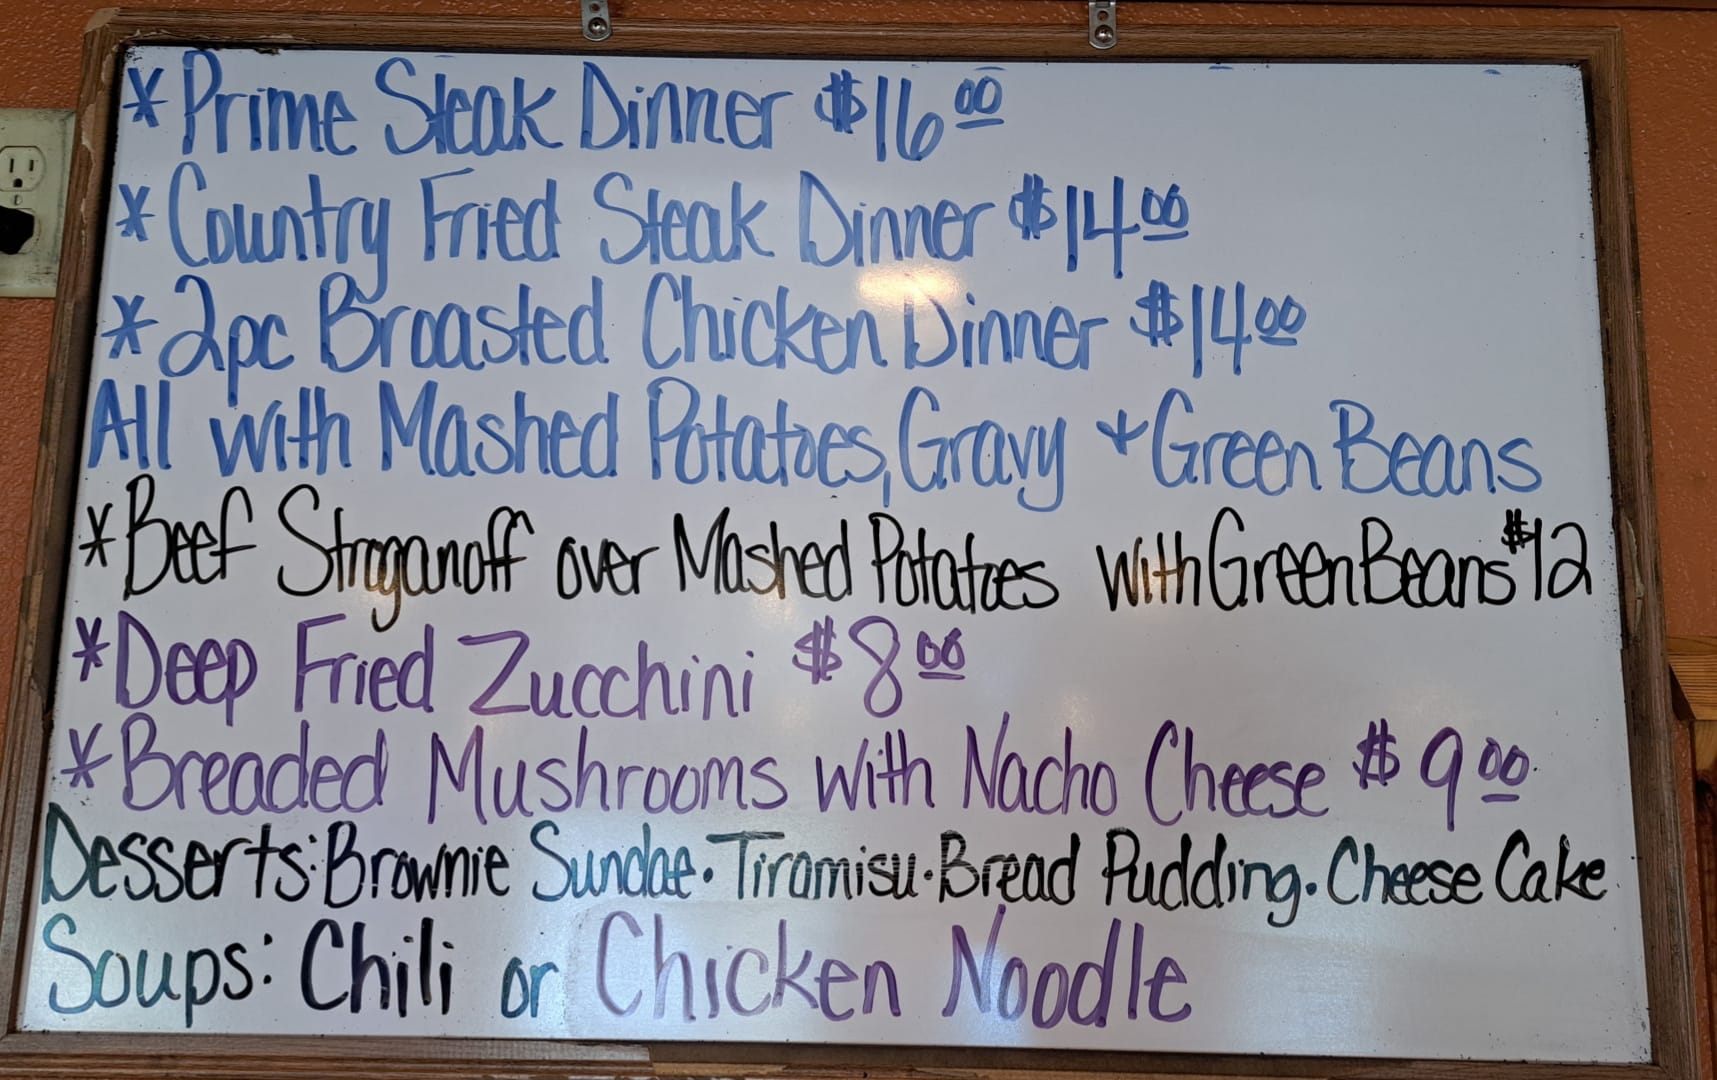 * Prime Steak Dinner $16.00
* Country Fried Steak Dinner $14.00
* 2pc Broasted Chicken Dinner $14.00
All with Mashed Potatoes, Gravy + Green Beans
* Beef Stroganoff over Mashed Potatoes with Green Beans $12
* Deep Fried Zucchini $8.00
* Breaded Mushrooms with Nacho Cheese $9.00
Desserts: Brownie Sundae · Tiramisu · Bread Pudding · Cheese Cake
Soups: Chili or Chicken Noodle